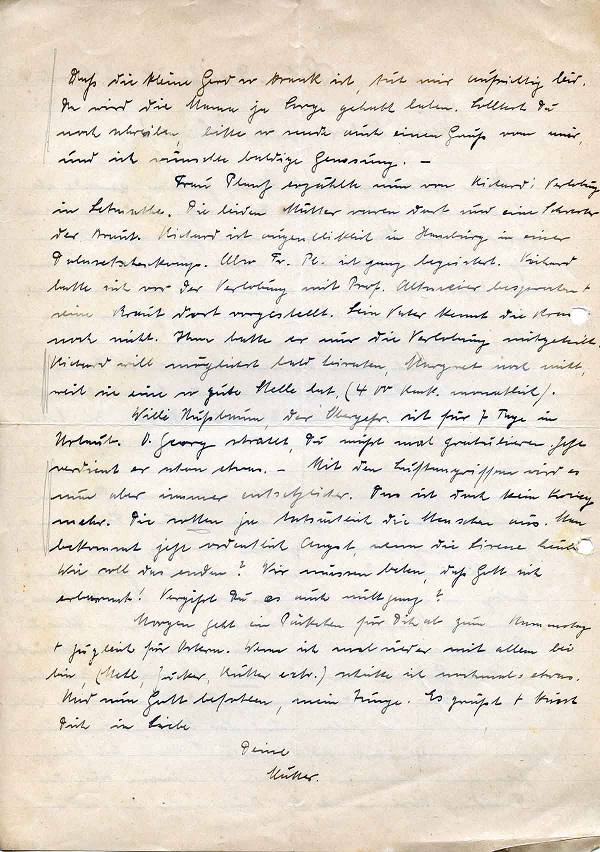 Daß die kleine Gerd so krank ist, tut mir aufrichtig leid.
Da wird die Mama ja Sorge gehabt haben. Solltest Du
noch schreiben, bitte so sende auch einen Gruß von mir,
und ich wünschte baldige Genesung. —
Frau erzählte nun von Richards Verlobung
in. Die beiden Mütter waren dort und eine Schwester
der Braut. Richard ist augenblicklich in Hamburg in einer
. Also Fr. Pl. ist ganz begeistert. Richard
hatte sich vor der Verlobung mit Prof. besprochen +
seine Braut dort vorgestellt. Sein Vater kennt die Braut
noch nicht. Ihm hatte er nur die Verlobung mitgeteilt.
Richard will möglichst bald heiraten, Margret noch nicht,
weil sie eine so gute Stelle hat, (400 monatlich).
Willi Nußbaum, der Obergefr. ist für 7 Tage in
Urlaub. O. Georg, Du müßt mal gratulieren, jetzt
verdient er schon etwas. — Mit den Luftangriffen wird es
nun aber immer entsetzlicher. Das ist doch kein Krieg
mehr. Die rotten ja tatsächlich die Menschen aus. Man
bekommt jetzt ordentlich Angst, wenn die Sirene heult.
Wie soll das enden? Wir müssen beten, daß Gott sich
erbarmt! Vergißt Du es auch nicht ganz?
Morgen geht ein Päckchen für Dich ab zum Namenstag
+ zugleich für Ostern. Wenn ich mal wieder mit allem bei
bin, (Mehl, Zucker, Butter) schicke ich nochmals etwas.
Und nun Gott befohlen, mein Junge. Es grüßt + küßt
Dich in Liebe
Deine
Mutter.